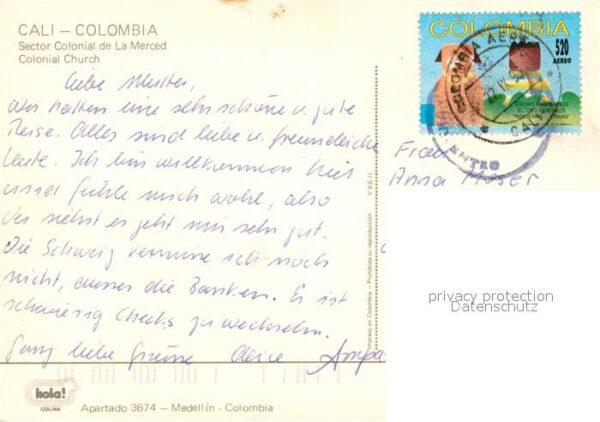 CALI – COLOMBIA
Sector Colonial de La Merced
Colonial Church
Liebe Mutter,
wir hatten eine sehr schöne u. gute
Reise. Alles sind liebe u. freundliche
Leute. Ich bin willkommen hier
und fühle mich wohl, also
du siehst es geht mir sehr gut.
Die Schweiz vermisse ich noch
nicht, ausser die Banken. Es ist
schwierig Checks zu wechseln.
Ganz liebe Grüsse
COLOMBIA
520
AEREO
COLOMBIA AEREO
CALI
Frau
Anna Moser
VXB-II
Impreso en Colombia - Prohibida su reproducción
privacy protection
Datenschutz
hola!
COLINA
Apartado 3674 – Medellín - Colombia